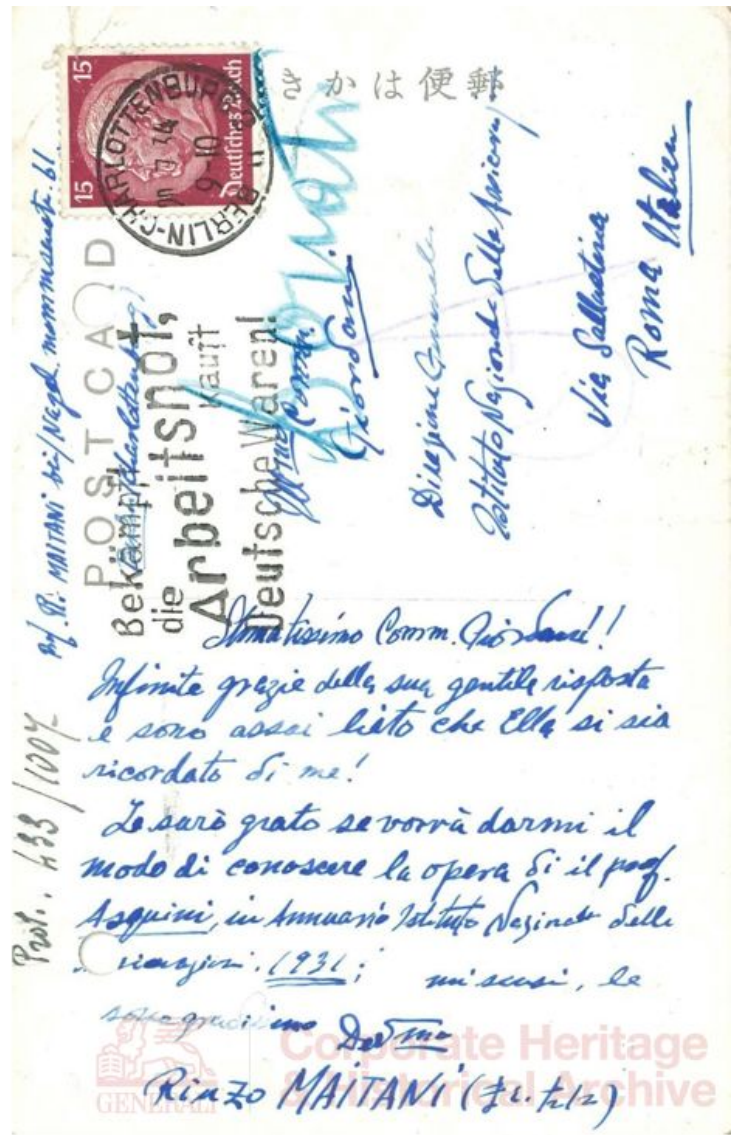 郵便はかき
POST CARD
15 15
Deutsches Reich
BERLIN-CHARLOTTENBURG
9-10
Bekämpft
die
Arbeitsnot,
kauft
Deutsche Waren!
MAITANI bei/Nagel mommsenstr. 61
Charlottenburg
Donati
Comm.
Giordani
Direzione Generale
Istituto Nazionale delle
Via Sallustiana
Roma Italien
Prot. 433/1007
Stimatissimo Comm. Giordani!
Infinite grazie della sua gentile risposta
e sono assai lieto che Ella si sia
ricordato di me!
Le sarò grato se vorrà darmi il
modo di conoscere la opera di il prof.
Asquini, in Annuario Istituto Nazionale delle
1931; mi scusi, le
Dev mo
Rinzo MAITANI
GENERALI
Corporate Heritage
& Historical Archive